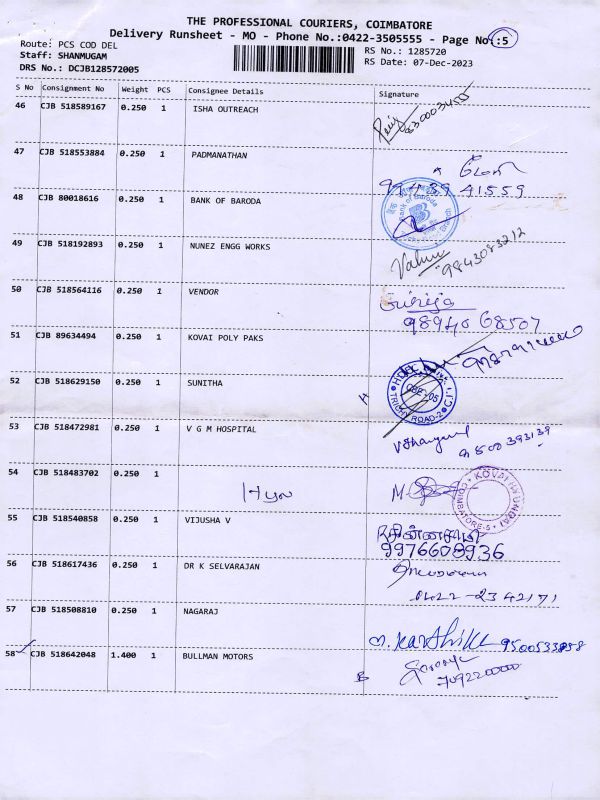 THE PROFESSIONAL COURIERS, COIMBATORE
Delivery Runsheet - MO - Phone No.:0422-3505555 - Page No.:5
Route: PCS COD DEL
RS No.: 1285720
Staff: SHANMUGAM
RS Date: 07-Dec-2023
DRS No.: DCJB128572005
S No Consignment No Weight PCS Consignee Details Signature
46 CJB 518589167 0.250 1 ISHA OUTREACH
47 CJB 518553884 0.250 1 PADMANATHAN
99439 41559
48 CJB 80018616 0.250 1 BANK OF BARODA
Bank of Baroda
49 CJB 518192893 0.250 1 NUNEZ ENGG WORKS
9843083212
50 CJB 518564116 0.250 1 VENDOR
98940 68507
51 CJB 89634494 0.250 1 KOVAI POLY PAKS
52 CJB 518629150 0.250 1 SUNITHA
TRICHY ROAD-2
53 CJB 518472981 0.250 1 V G M HOSPITAL
54 CJB 518483702 0.250 1
COIMBATORE-5
55 CJB 518540858 0.250 1 VIJUSHA V
9976608936
56 CJB 518617436 0.250 1 DR K SELVARAJAN
0422-2342171
57 CJB 518508810 0.250 1 NAGARAJ
58 CJB 518642048 1.400 1 BULLMAN MOTORS
7092200000